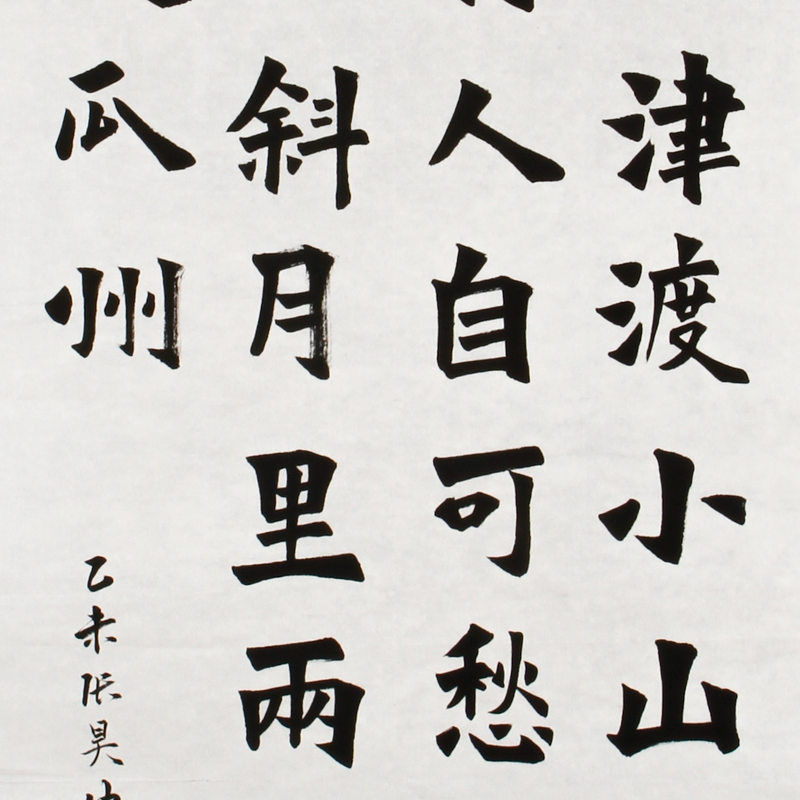 津渡小山
人自可愁
斜月里兩
瓜州
乙未张昊